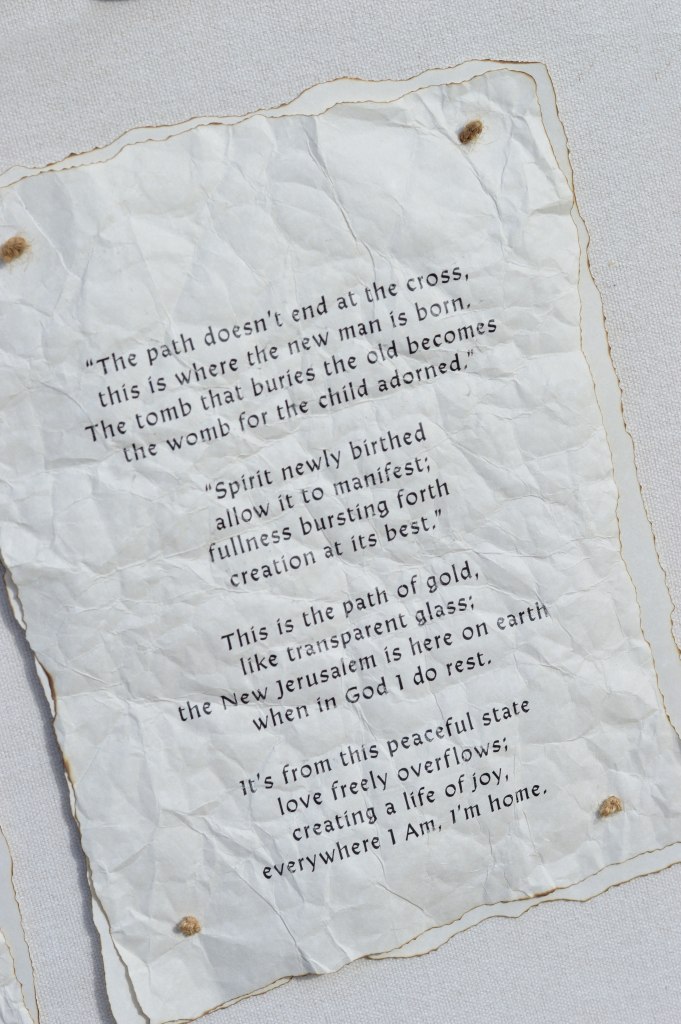 “The path doesn't end at the cross,
this is where the new man is born.
The tomb that buries the old becomes
the womb for the child adorned.”
“Spirit newly birthed
allow it to manifest;
fullness bursting forth
creation at its best.”
This is the path of gold,
like transparent glass;
the New Jerusalem is here on earth
when in God I do rest.
It's from this peaceful state
love freely overflows;
creating a life of joy,
everywhere I Am, I'm home.